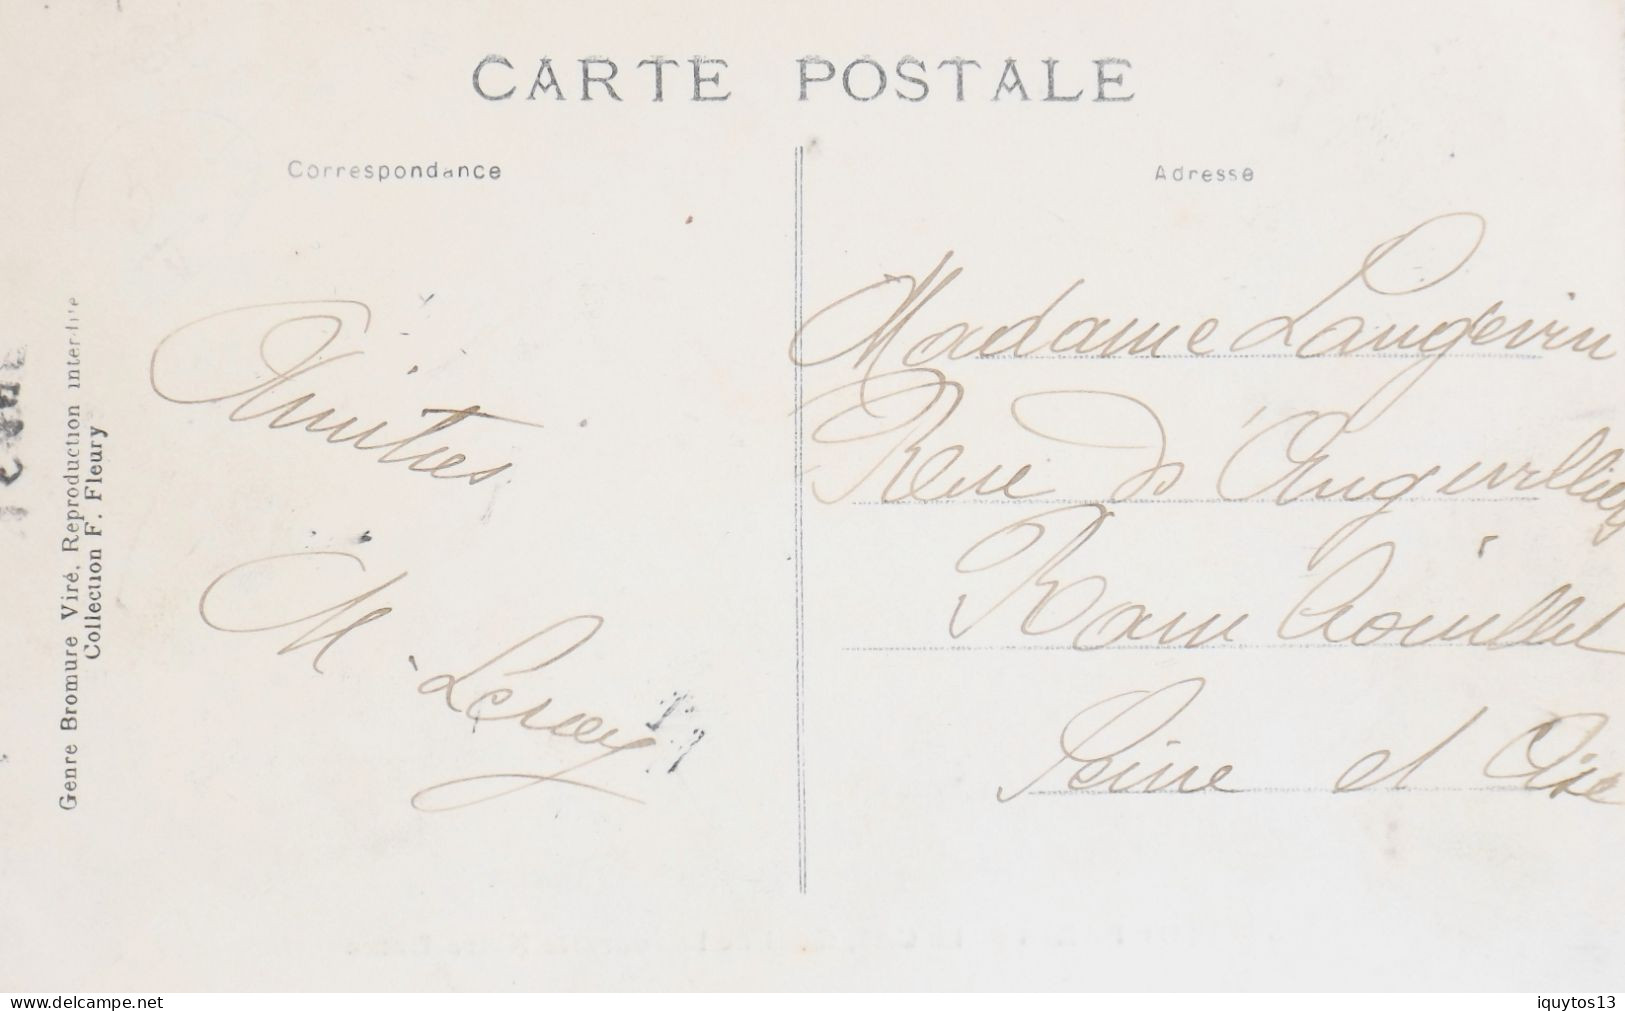 CARTE POSTALE
Correspondance
Adresse
Amitiés
M. Leroy
Madame Langevin
Rue d'Angivillier
Rambouillet
Seine et Oise
Genre Bromure Viré, Reproduction interdite
Collection F. Fleury
www.delcampe.net
iquytos13